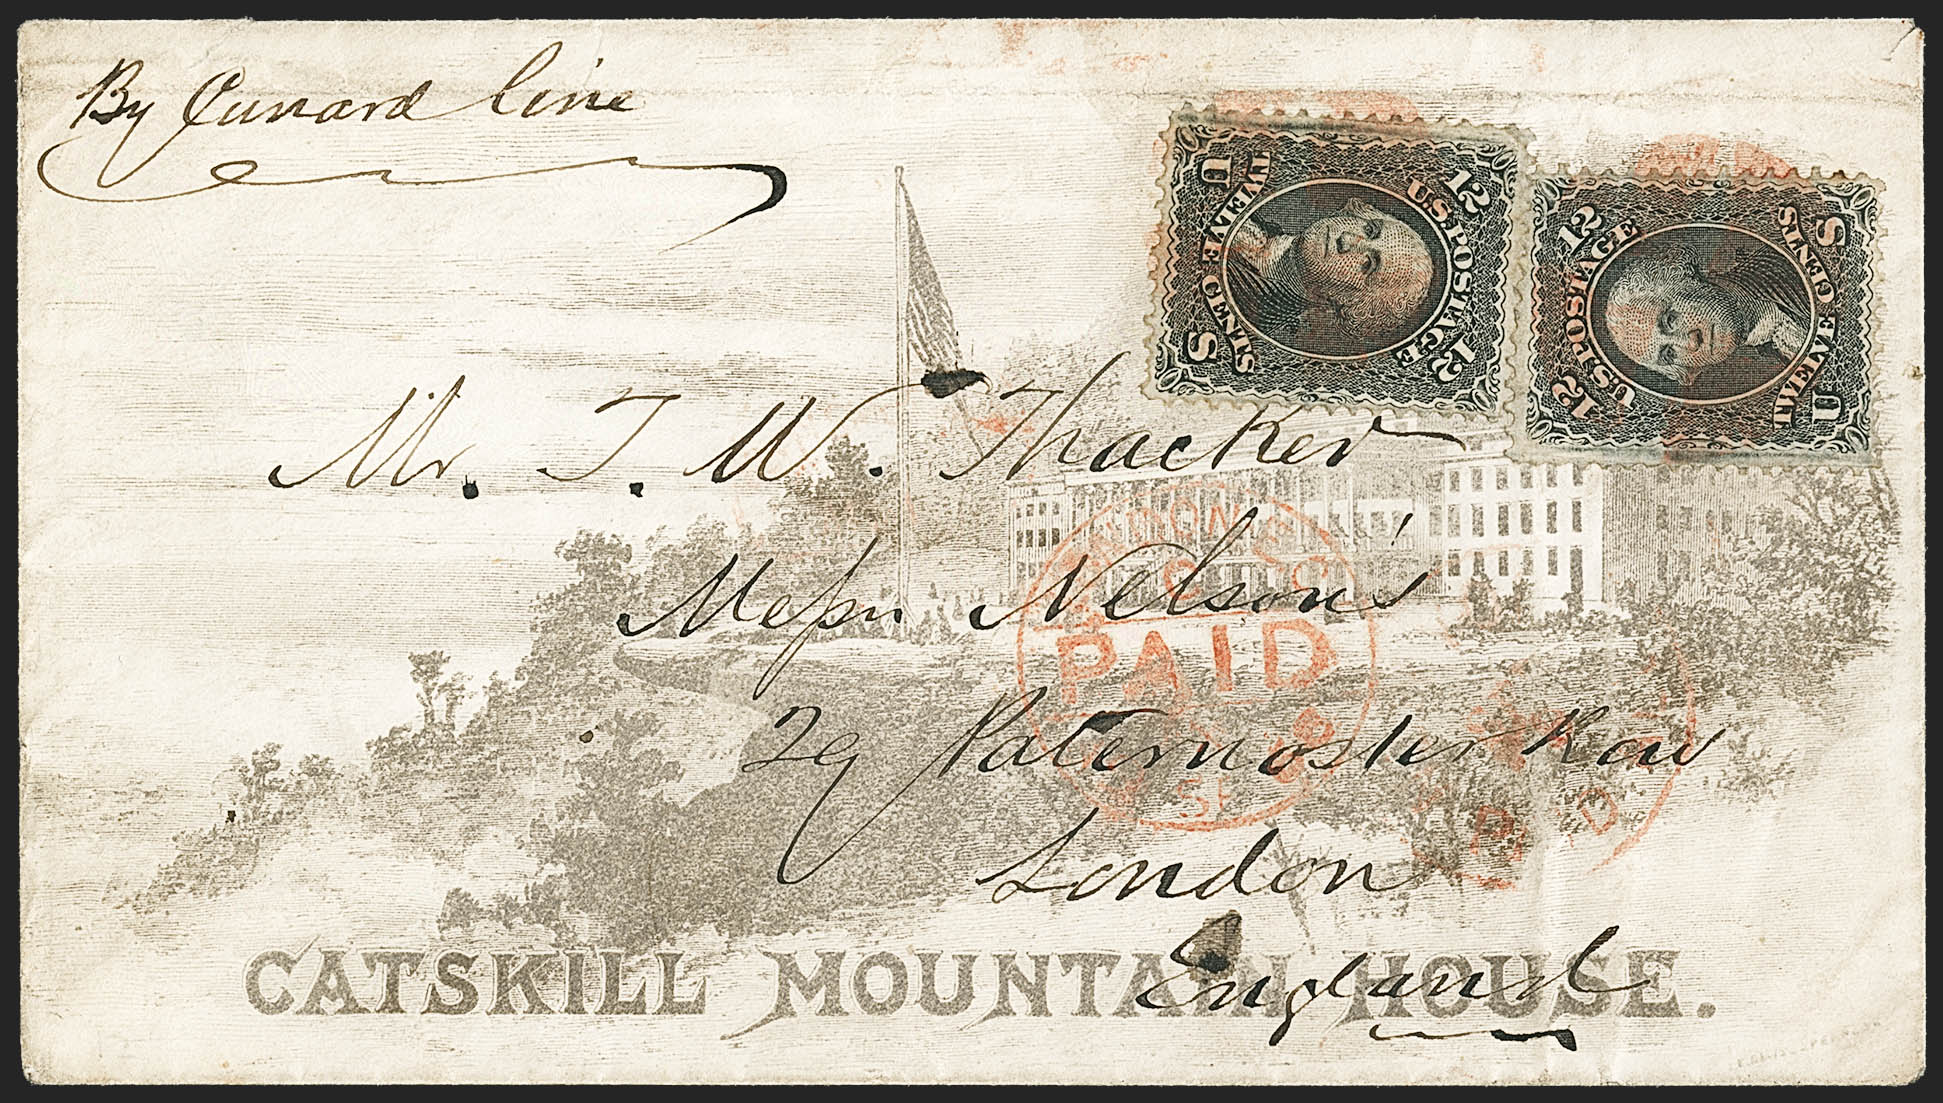 By Cunard line
U 12
TWELVE CENTS U.S. POSTAGE
S 12
12 S
U.S. POSTAGE TWELVE CENTS
12 U
Mr. T. W. Thacker
Messrs Nelson's
29 Paternoster Row
London
England
LONDON
PAID
PAID
CATSKILL MOUNTAIN HOUSE.